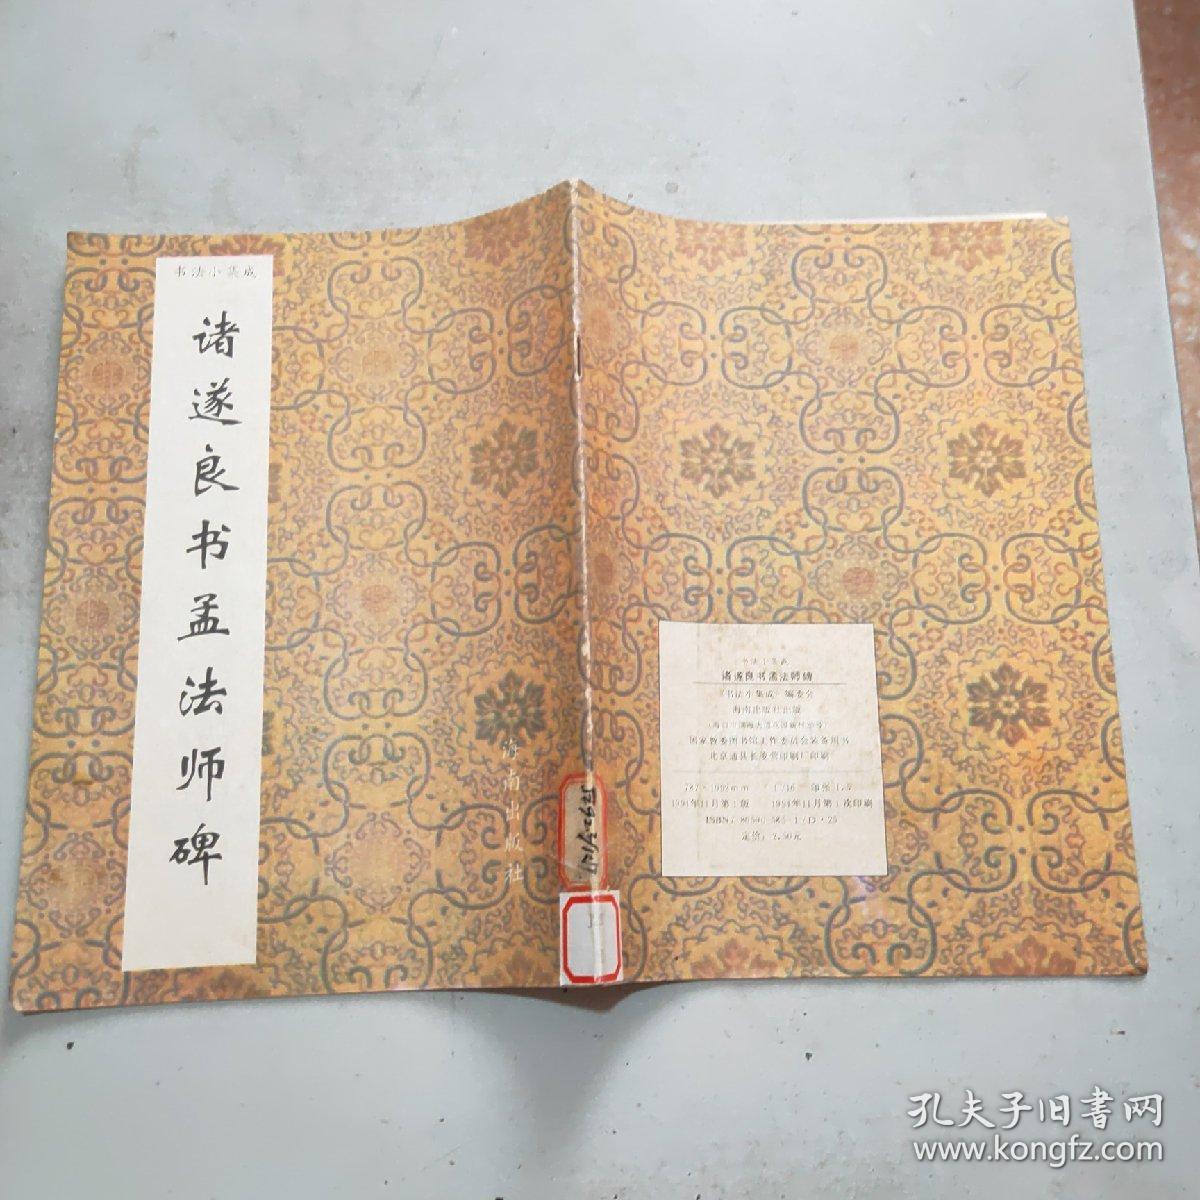 书法小集成
诸遂良书孟法师碑
海南出版社
书法小集成
诸遂良书孟法师碑
《书法小集成》编委会
海南出版社出版
国家教委图书馆工作委员会装备用书
北京通县长凌营印刷厂印刷
1994年11月第1版 1994年11月第1次印刷
定价：2.50元
孔夫子旧书网
www.kongfz.com